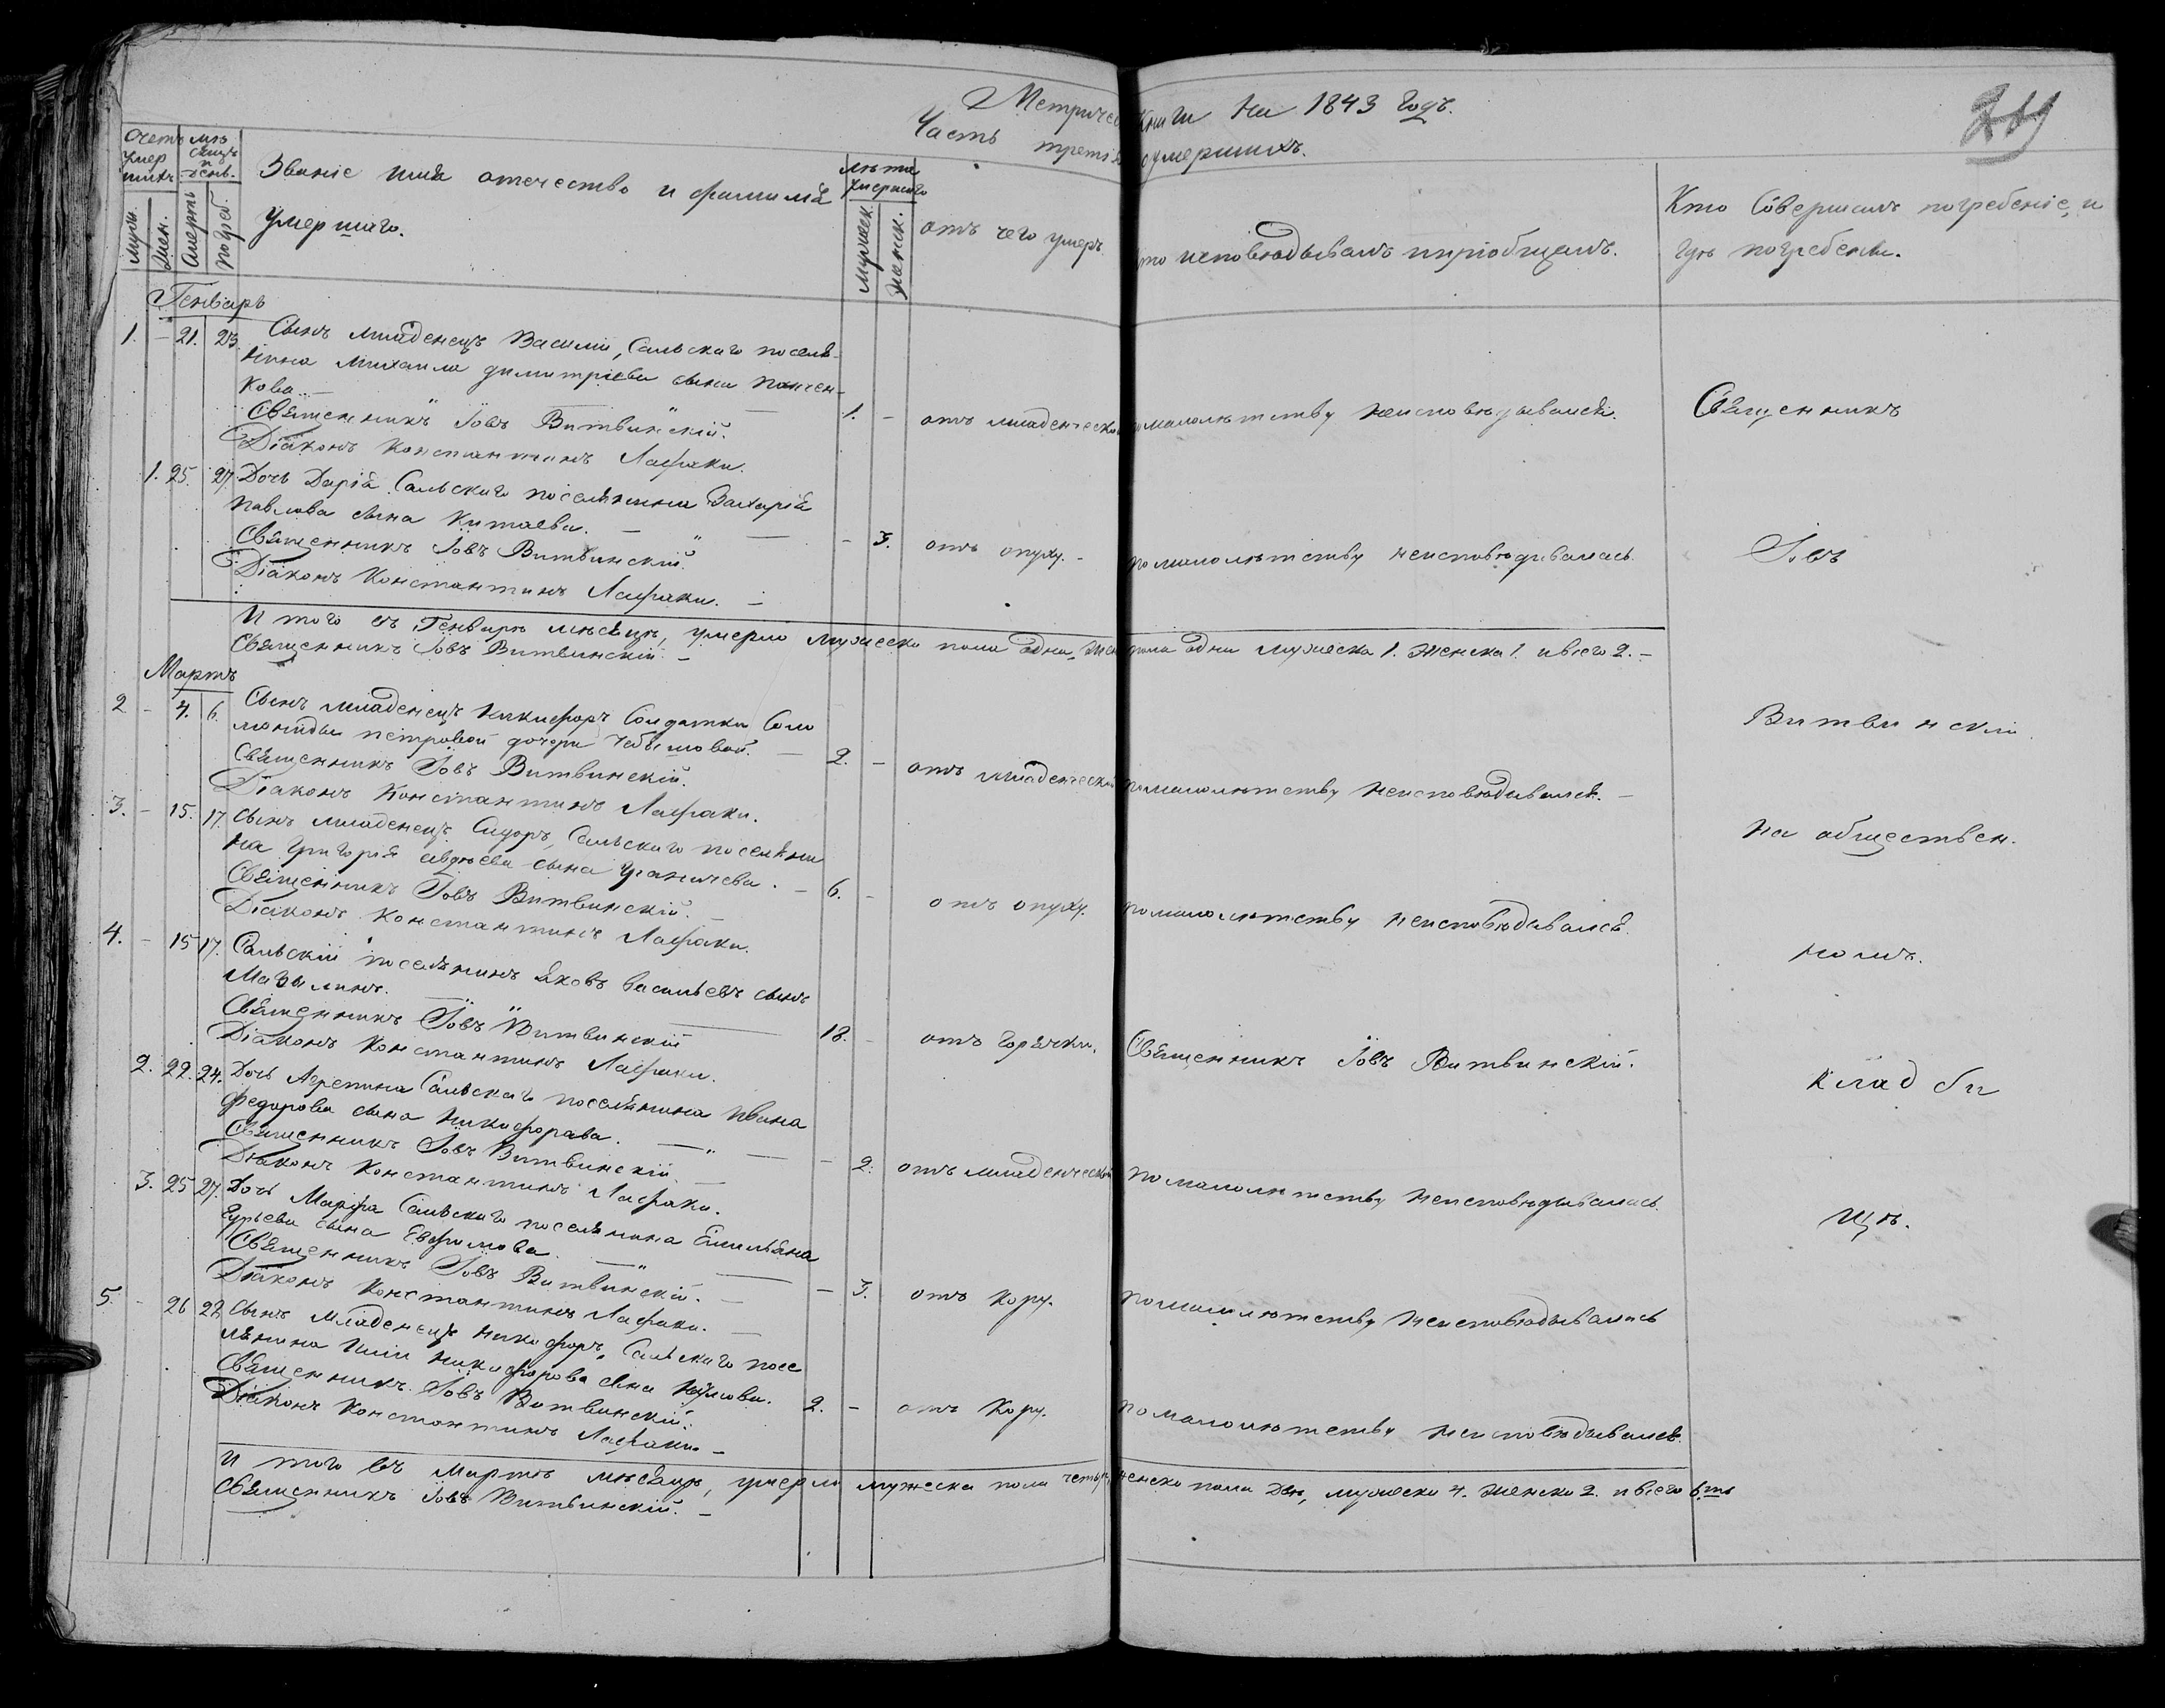 Метричес книги на 1843 годъ.
Часть третія умершихъ.
Счетъ умершихъ
мѣсяцъ и день.
Званіе имя отечество и фамилія умершаго.
Лѣта умершаго
отъ чего умеръ
кто исповѣдывалъ и пріобщалъ.
Кто Совершалъ погребеніе, и гдѣ погребены.
муж. жен. смерти погреб. мужеск. женск.
Генварь
1. - 21. 23. Сынъ младенецъ Василій, Сальскаго поселя-
нина Михаила димитріева сына
кова
Священникъ Іовъ Витвинскій. 1. - отъ младенческой по малолѣтству неисповѣдывался. Священникъ
Діаконъ Константинъ Лафаки.
1. 25. 27. Дочь Дарія Сальскаго поселянина Захарія
Павлова сына Китаева.
Священникъ Іовъ Витвинскій. - 3. отъ опуху. по малолѣтству неисповѣдывалась. Іовъ
Діаконъ Константинъ Лафаки.
И того въ Генварѣ мѣсяцѣ, умерло мужеска пола одна, жен пола одна мужеска 1. женска 1. и всего 2.
Священникъ Іовъ Витвинскій.
Мартъ
2 - 4. 6. Сынъ младенецъ Никифоръ Солдатки Соло
мониды петровой дочери
Священникъ Іовъ Витвинскій. 2. - отъ младенческой по малолѣтству неисповѣдывался. Витвинскій
Діаконъ Константинъ Лафаки.
3. - 15. 17. Сынъ младенецъ Сидоръ, Сальскаго поселяни
на Григорія авдѣева сына
Священникъ Іовъ Витвинскій. 6. - отъ опуху. по малолѣтству неисповѣдывался. на обществен.
Діаконъ Константинъ Лафаки.
4. - 15 17. Сальскій поселянинъ Яковъ Васильевъ сынъ номъ.
Священникъ Іовъ Витвинскій 18. - отъ горячки. Священникъ Іовъ Витвинскій.
Діаконъ Константинъ Лафаки.
2. 22. 24. Дочь Агрепина Сальскаго поселянина Ивана кладби
Федорова сына Никифорава.
Священникъ Іовъ Витвинскій - 2. отъ младенческой по малолѣтству неисповѣдывалась.
Діаконъ Константинъ Лафаки.
3. 25 27. Дочь Марфа Сальскаго поселянина Емильяна щѣ.
Гурьева сына Ефимова.
Священникъ Іовъ Витвинскій. - 3. отъ кору. по малолѣтству неисповѣдывалась
Діаконъ Константинъ Лафаки.
5. - 26 28 Сынъ младенецъ Никифоръ, Сальскаго посе
лянина Иліи Никифорова сына
Священникъ Іовъ Витвинскій. 2. - отъ кору. по малолѣтству неисповѣдывался.
Діаконъ Константинъ Лафаки.
И того въ Мартѣ мѣсяцѣ, умерло мужеска пола четыр женска пола двѣ, мужеска 4. женска 2. и всего 6.ть
Священникъ Іовъ Витвинскій.